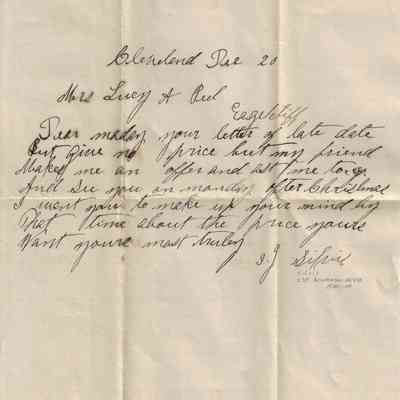 Cleveland Dec 20
Mrs Lucy A Peel
Eagle Cliff
Dear madam your letter of late date
But give no price but my friend
Makes me an offer and ast me to
And See you on monday after Christmas
I want you to make up your mind by
That time about the price youre
Want youre most truley
J